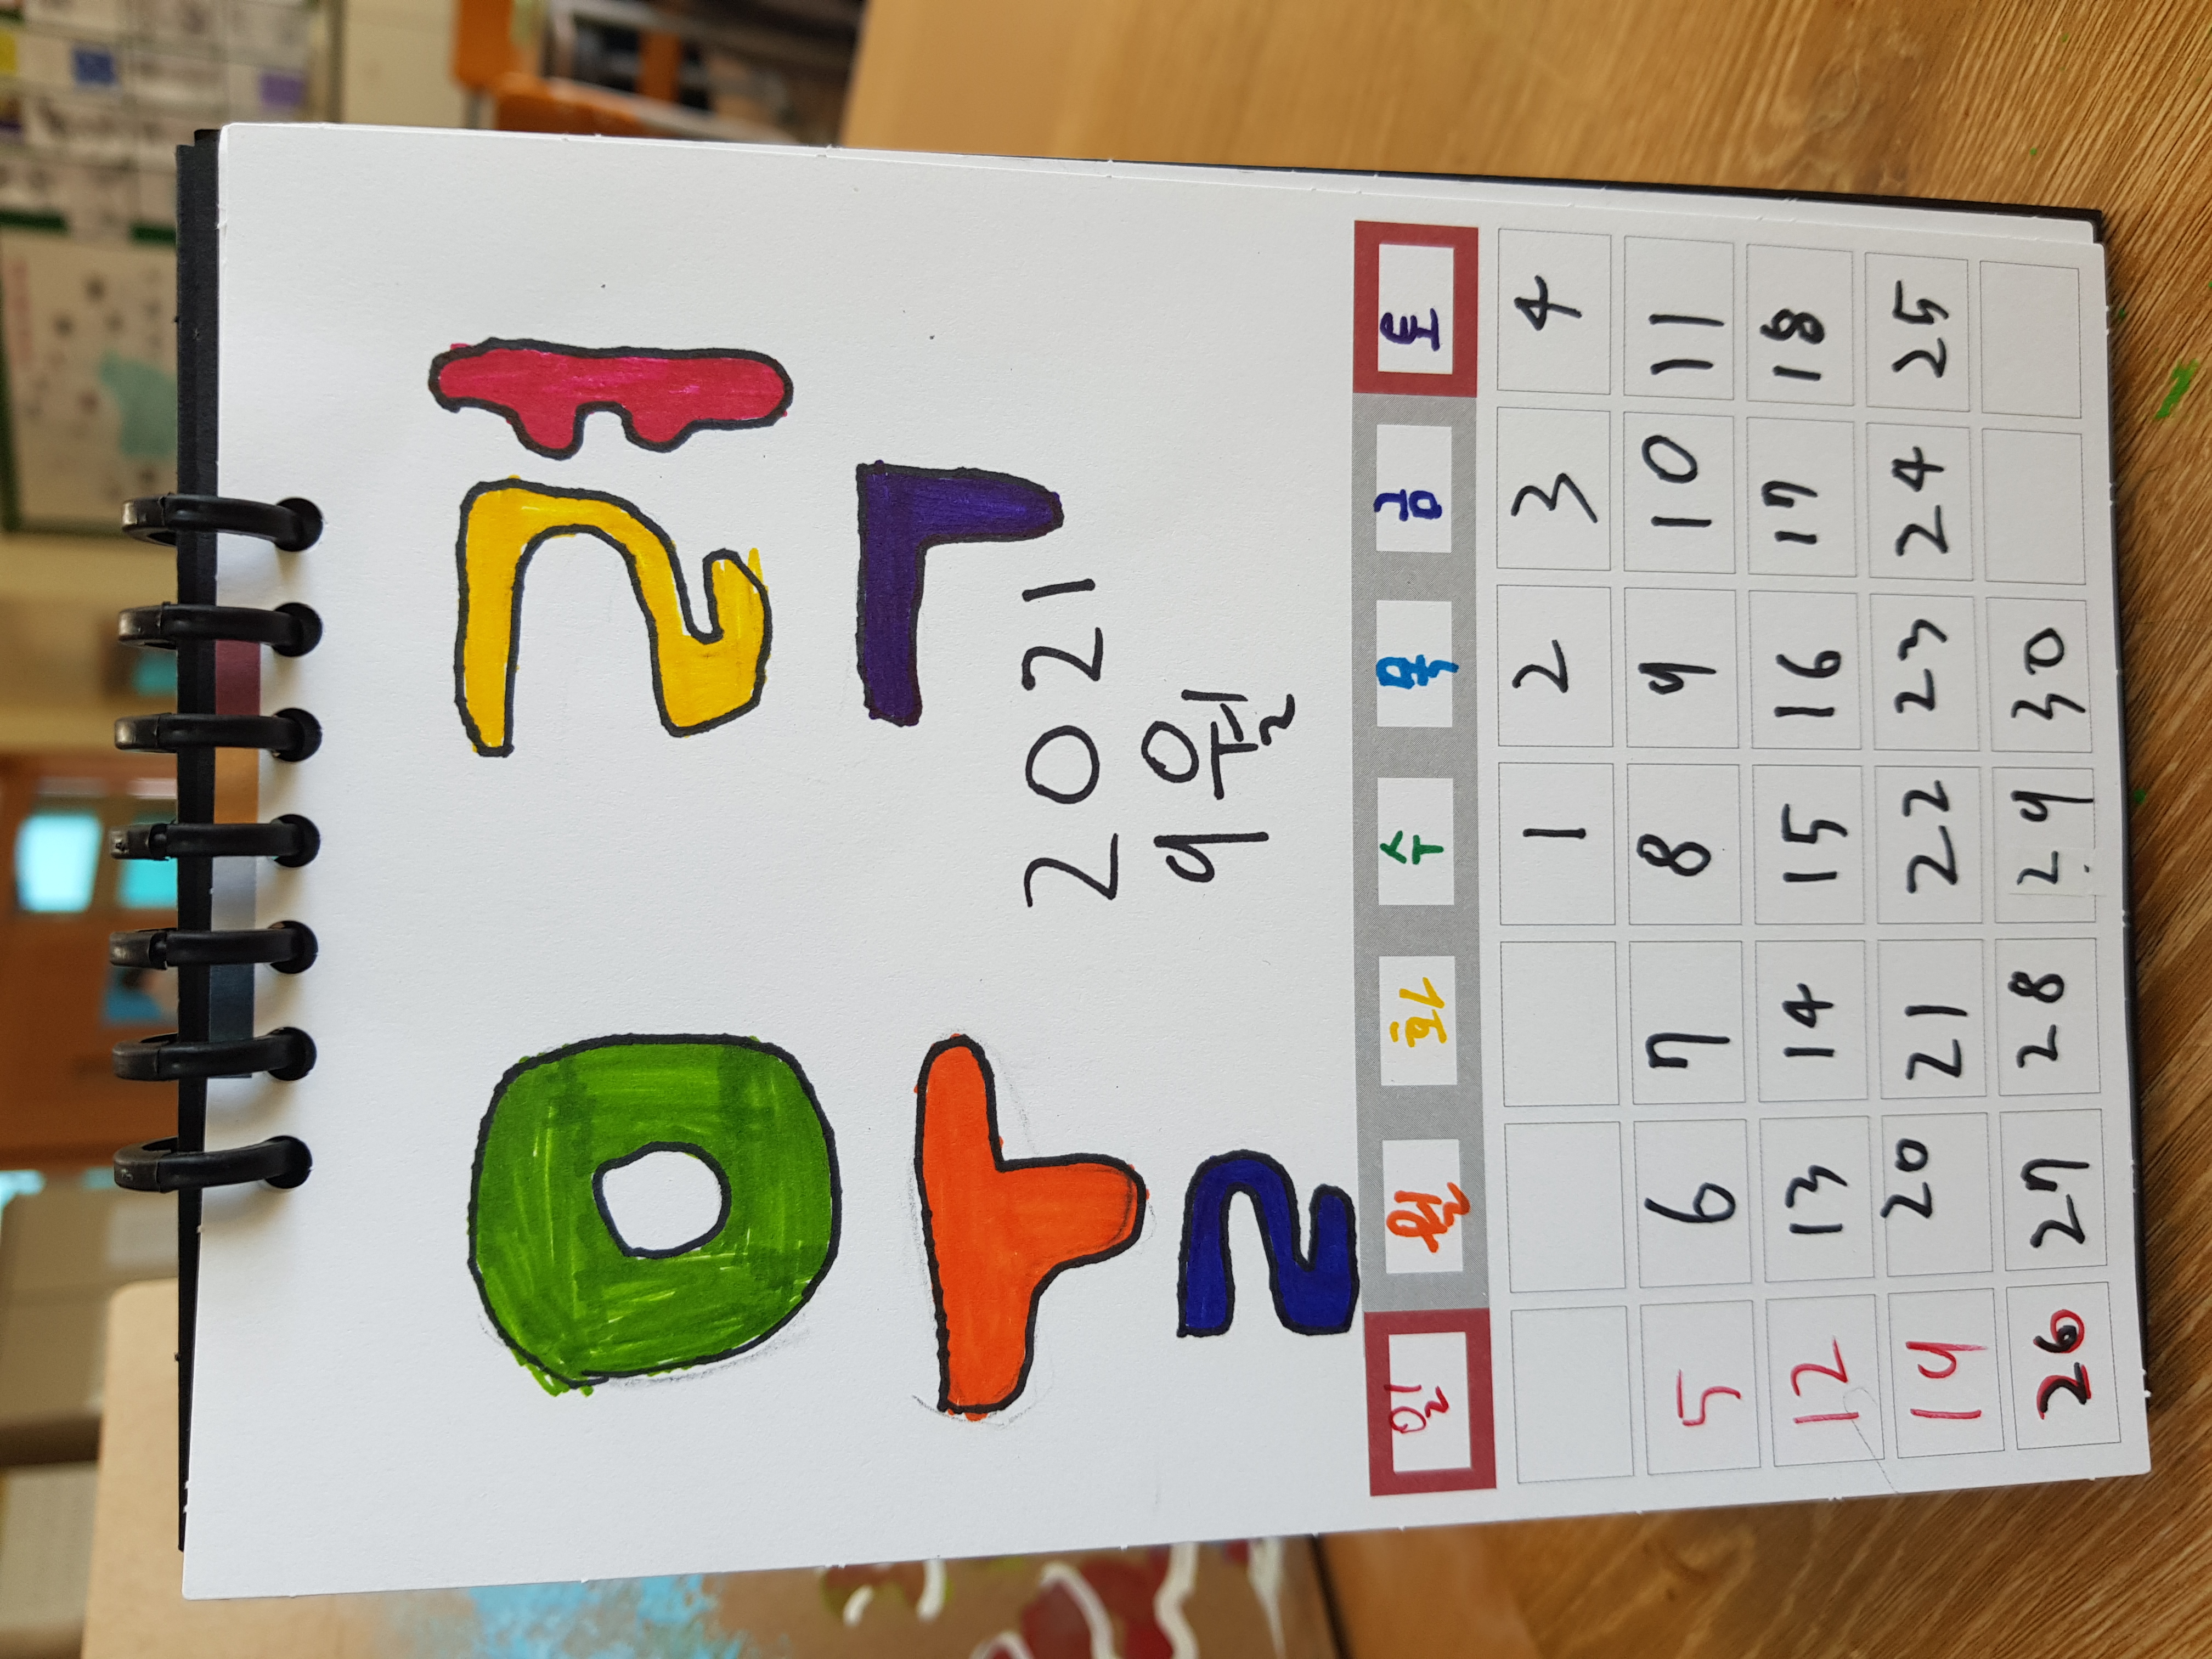 울력
2021
9월
일 월 화 수 목 금 토
1 2 3 4
5 6 7 8 9 10 11
12 13 14 15 16 17 18
19 20 21 22 23 24 25
26 27 28 29 30